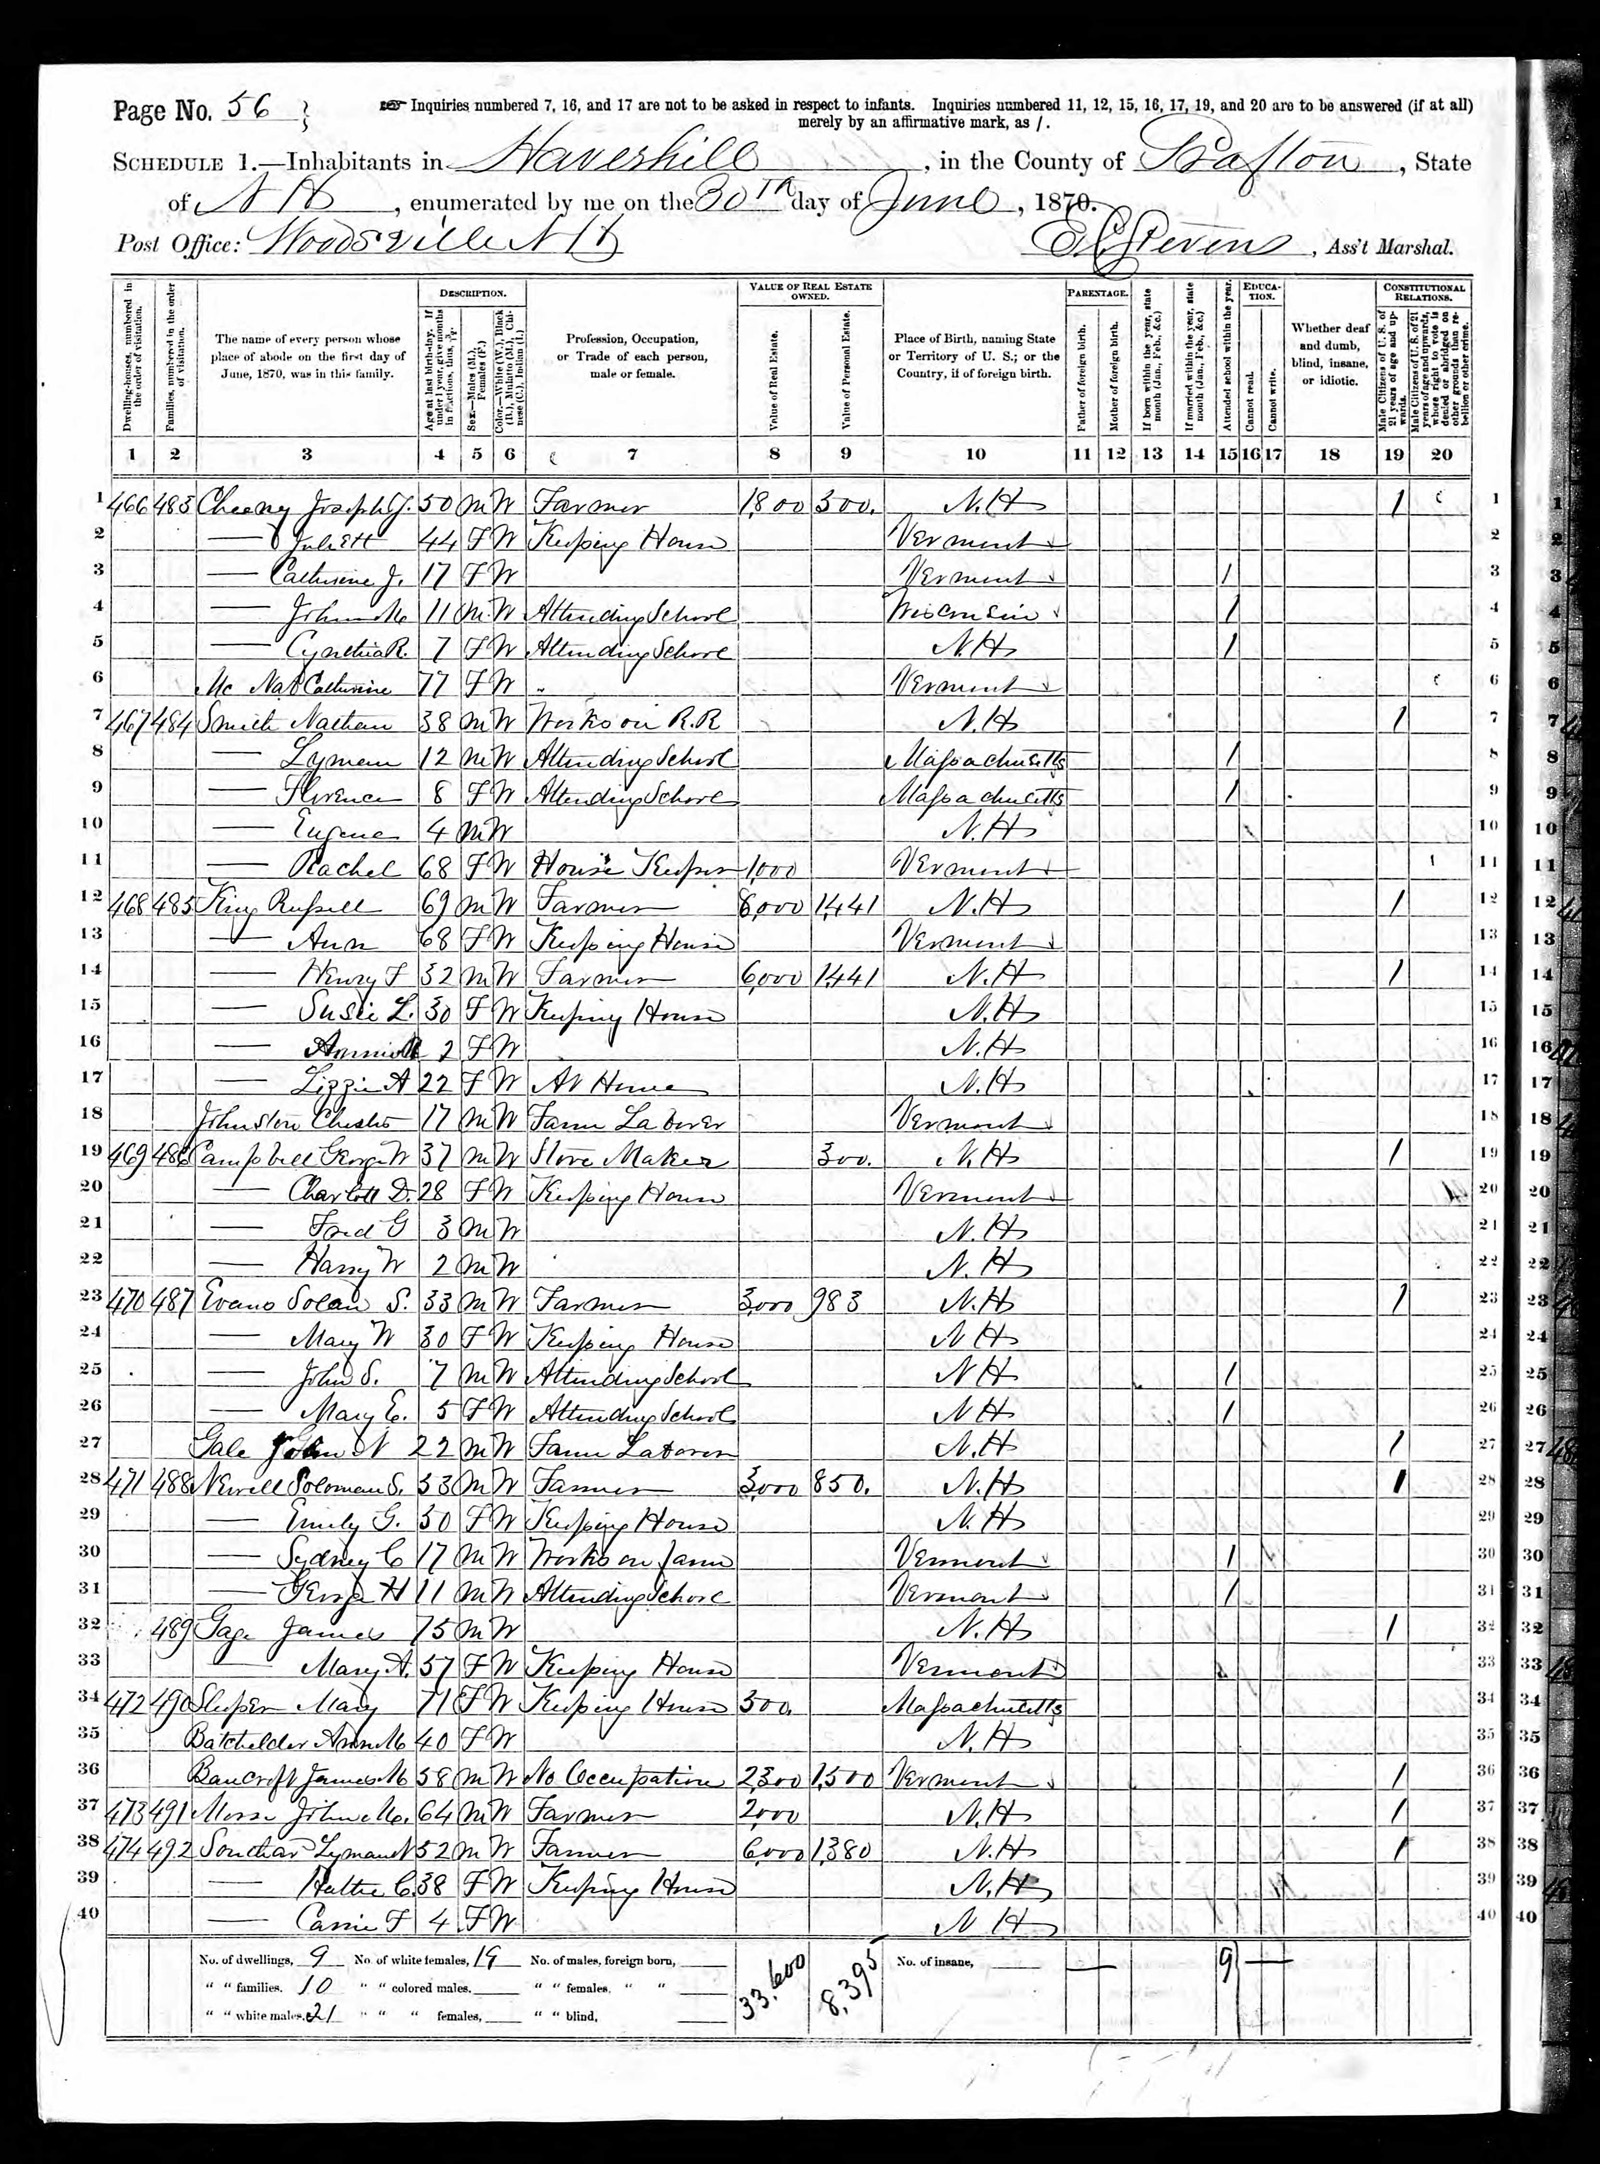 Page No. 56
Inquiries numbered 7, 16, and 17 are not to be asked in respect to infants. Inquiries numbered 11, 12, 15, 16, 17, 19, and 20 are to be answered (if at all)
merely by an affirmative mark, as /.
SCHEDULE 1.—Inhabitants in Haverhill, in the County of Grafton, State
of N H, enumerated by me on the 30th day of June, 1870.
Post Office: Woodsville N H
E C Stevens, Ass't Marshal.
Dwelling-houses, numbered in the order of visitation.
Families, numbered in the order of visitation.
The name of every person whose place of abode on the first day of June, 1870, was in this family.
DESCRIPTION.
Age at last birth-day. If under 1 year, give months in fractions, thus, 3/12.
Sex.—Males (M.), Females (F.)
Color.—White (W.), Black (B.), Mulatto (M.), Chinese (C.), Indian (I.)
Profession, Occupation, or Trade of each person, male or female.
VALUE OF REAL ESTATE OWNED.
Value of Real Estate.
Value of Personal Estate.
Place of Birth, naming State or Territory of U. S.; or the Country, if of foreign birth.
PARENTAGE.
Father of foreign birth.
Mother of foreign birth.
If born within the year, state month (Jan., Feb., &c.)
If married within the year, state month (Jan., Feb., &c.)
EDUCATION.
Attended school within the year.
Cannot read.
Cannot write.
Whether deaf and dumb, blind, insane, or idiotic.
CONSTITUTIONAL RELATIONS.
Male Citizens of U. S. of 21 years of age and upwards.
Male Citizens of U. S. of 21 years of age and upwards, whose right to vote is denied or abridged on other grounds than rebellion or other crime.
1 2 3 4 5 6 7 8 9 10 11 12 13 14 15 16 17 18 19 20
1 466 483 Cheeny Joseph J. 50 M W Farmer 1,800 300. N.H / 1
2 — Juliett 44 F W Keeping House Vermont 2
3 — Catherine J. 17 F W Vermont / 3
4 — John M 11 M W Attending School Wisconsin / 4
5 — Cynthia R. 7 F W Attending School N.H / 5
6 Mc Nab Catherine 77 F W Vermont 6
7 467 484 Smith Nathan 38 M W Works on R.R N.H / 7
8 — Lyman 12 M W Attending School Massachusetts / 8
9 — Florence 8 F W Attending School Massachusetts / 9
10 — Eugene 4 M W N.H 10
11 — Rachel 68 F W House Keeper 1,000 Vermont 11
12 468 485 King Russell 69 M W Farmer 8,000 1,441 N.H / 12
13 — Ann 68 F W Keeping House Vermont 13
14 — Henry F 32 M W Farmer 6,000 1,441 N.H / 14
15 — Susie L. 30 F W Keeping House N.H 15
16 — Annie 2 F W N.H 16
17 — Lizzie A 22 F W At Home N.H 17
18 Johnston Chester 17 M W Farm Laborer Vermont 18
19 469 486 Campbell George W 37 M W Stove Maker 300. N.H / 19
20 — Charlott D. 28 F W Keeping House Vermont 20
21 — Fred G 3 M W N.H 21
22 — Harry W 2 M W N.H 22
23 470 487 Evans Solan S. 33 M W Farmer 3,000 983 N.H / 23
24 — Mary W 30 F W Keeping House N H 24
25 — John S. 7 M W Attending School N H / 25
26 — Mary E. 5 F W Attending School N H / 26
27 Gale John N 22 M W Farm Laborer N.H / 27
28 471 488 Newell Soloman S. 53 M W Farmer 3,000 850. N.H / 28
29 — Emily G. 50 F W Keeping House N.H 29
30 — Sydney C 17 M W Works on farm Vermont / 30
31 — George H 11 M W Attending School Vermont / 31
32 489 Gage James 75 M W N.H / 32
33 — Mary A. 57 F W Keeping House Vermont 33
34 472 490 Sleeper Mary 71 F W Keeping House 500. Massachusetts 34
35 Batchelder Ann M 40 F W N.H 35
36 Bancroft James M 58 M W No Occupation 2,300 1,500 Vermont / 36
37 473 491 Morse John M. 64 M W Farmer 2,000 N.H / 37
38 474 492 Southard Lyman N 52 M W Farmer 6,000 1,380 N.H / 38
39 — Hattie C. 38 F W Keeping House N.H 39
40 — Carrie F 4 F W N H 40
No. of dwellings, 9 No. of white females, 19 No. of males, foreign born, 33,600 8,395 No. of insane, 9
" " families. 10 " " colored males, " " females, " "
" " white males, 21 " " " females, " " blind,